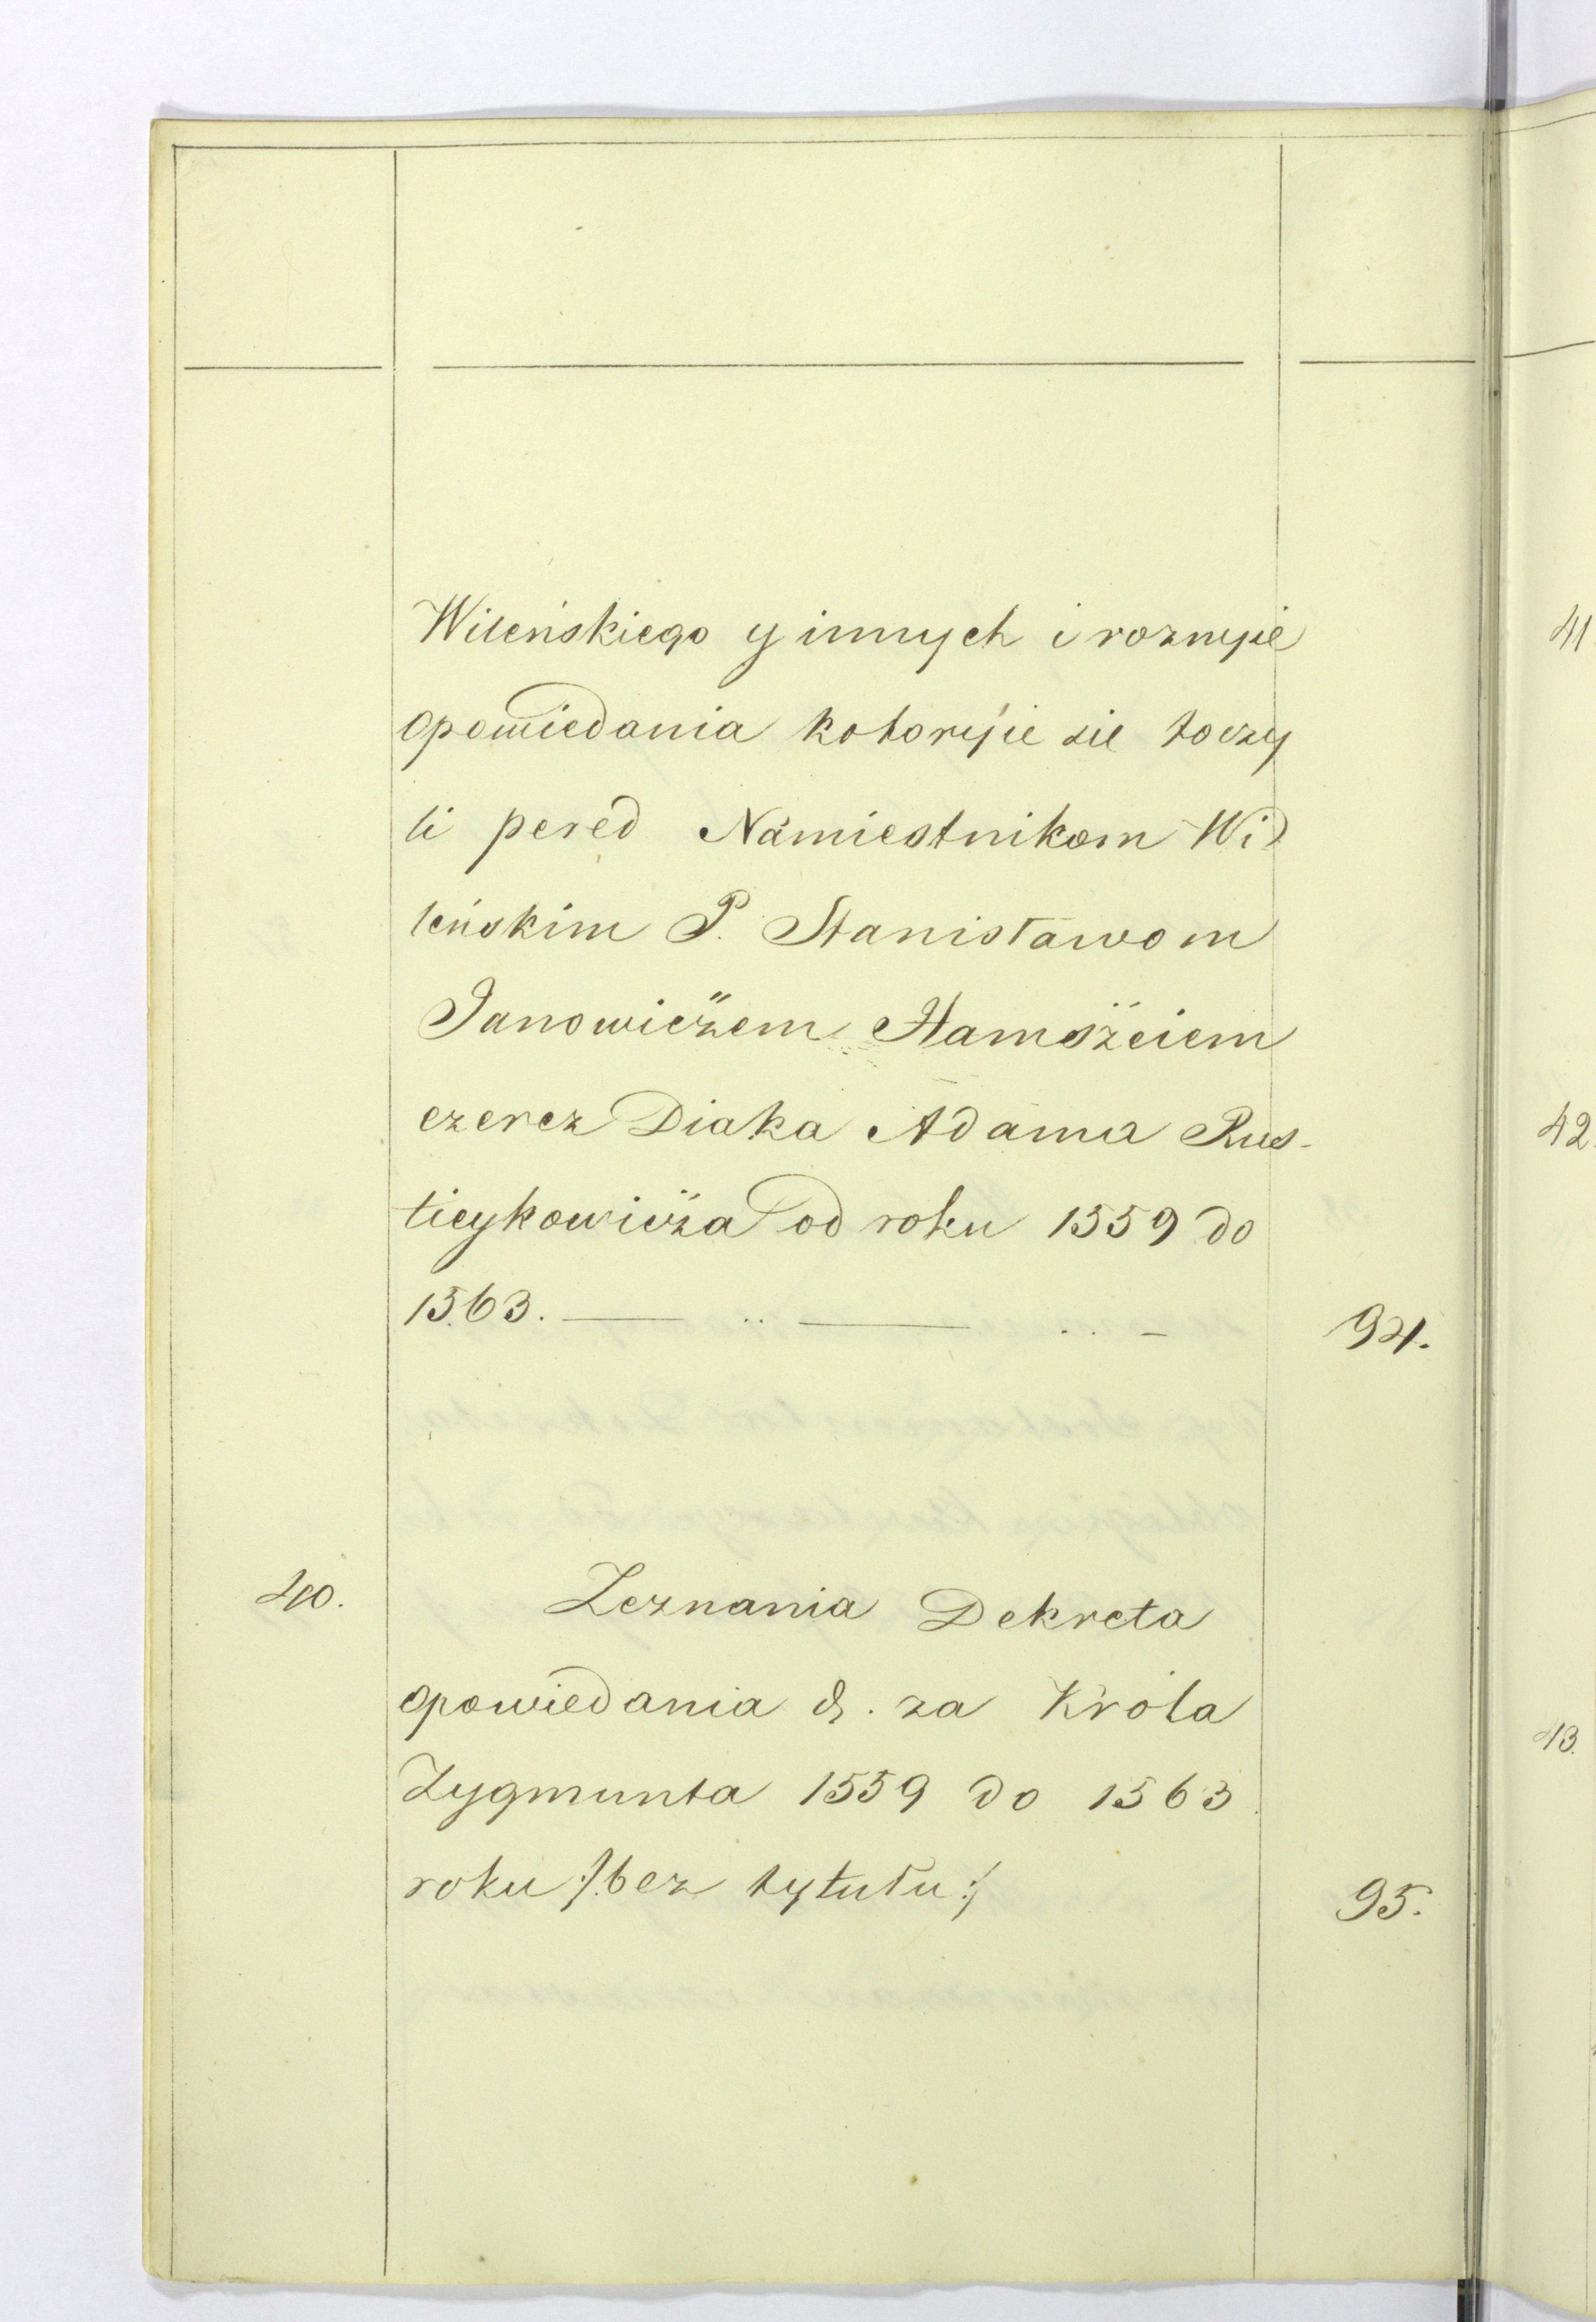 Wileńskiego y innych i roznyie
opowiedania kotoryie sie toczy
li pered Namiestnikom Wi
leńskim P. Stanisławom
Janowiczem Hamszeiem
czerez Diaka Adama Rus-
tieykowicza od roku 1559 do
1563. — .. — .. - 94.
40. Zeznania Dekreta
opowiedania &. za Króla
Zygmunta 1559 do 1563
roku /:bez tytułu:/ 95.
41
42.
43.